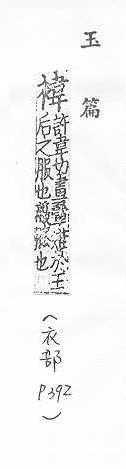 玉篇
褘
許韋切畫翬雉於王
后之服也也
(衣部 P392)